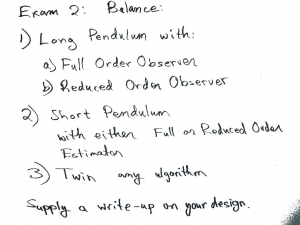 Exam 2: Balance:
1) Long Pendulum with:
a) Full Order Observer
b) Reduced Order Observer
2) Short Pendulum
with either Full or Reduced Order
Estimator
3) Twin any algorithm
Supply a write-up on your design.